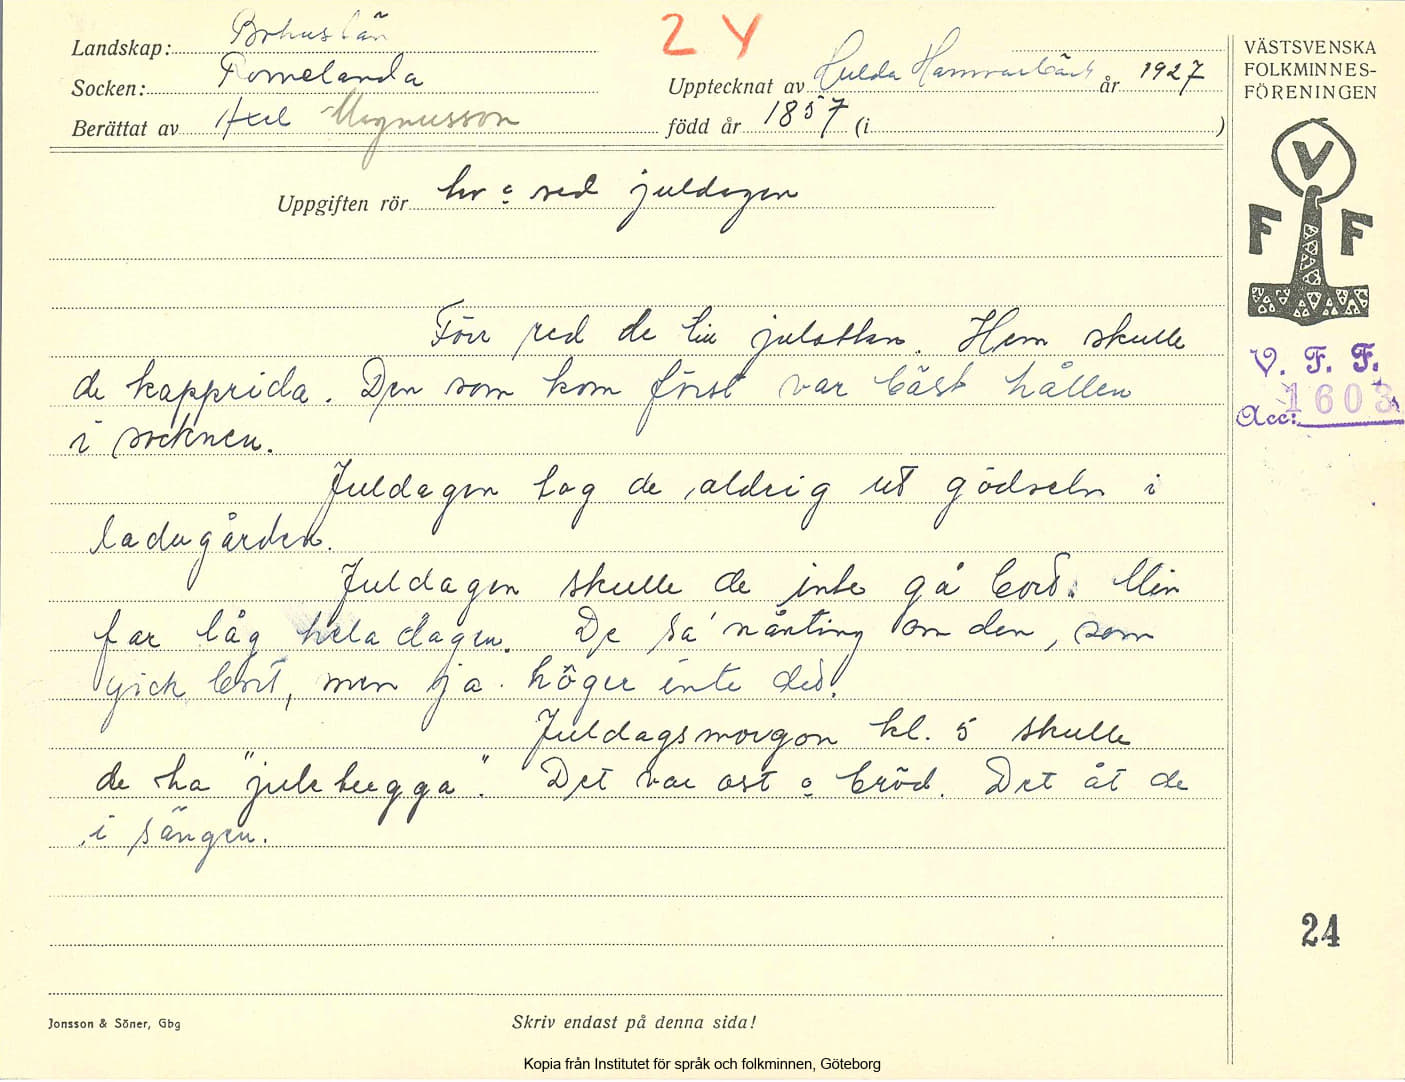 Landskap: Bohuslän
2 Y
Socken: Romelanda
Upptecknat av Hulda Hammarbäck år 1927
Berättat av Axel Magnusson
född år 1857 (i )
Uppgiften rör sed juldagen
Förr red de till julottan. Hem skulle
de kapprida. Den som kom först var bäst hållen
i socknen.
Juldagen tog de aldrig ut gödseln i
ladugården.
Juldagen skulle de inte gå bort. Min
far låg hela dagen. De sa' nånting om den, som
gick bort, men ja höger inte det.
Juldagsmorgon kl. 5 skulle
de ha "julebugga". Det var ost o bröd. Det åt de
i sängen.
Jonsson & Söner, Gbg
Skriv endast på denna sida!
Kopia från Institutet för språk och folkminnen, Göteborg
VÄSTSVENSKA
FOLKMINNES-
FÖRENINGEN
V
F F
V. F. F.
Acc: 1603
24